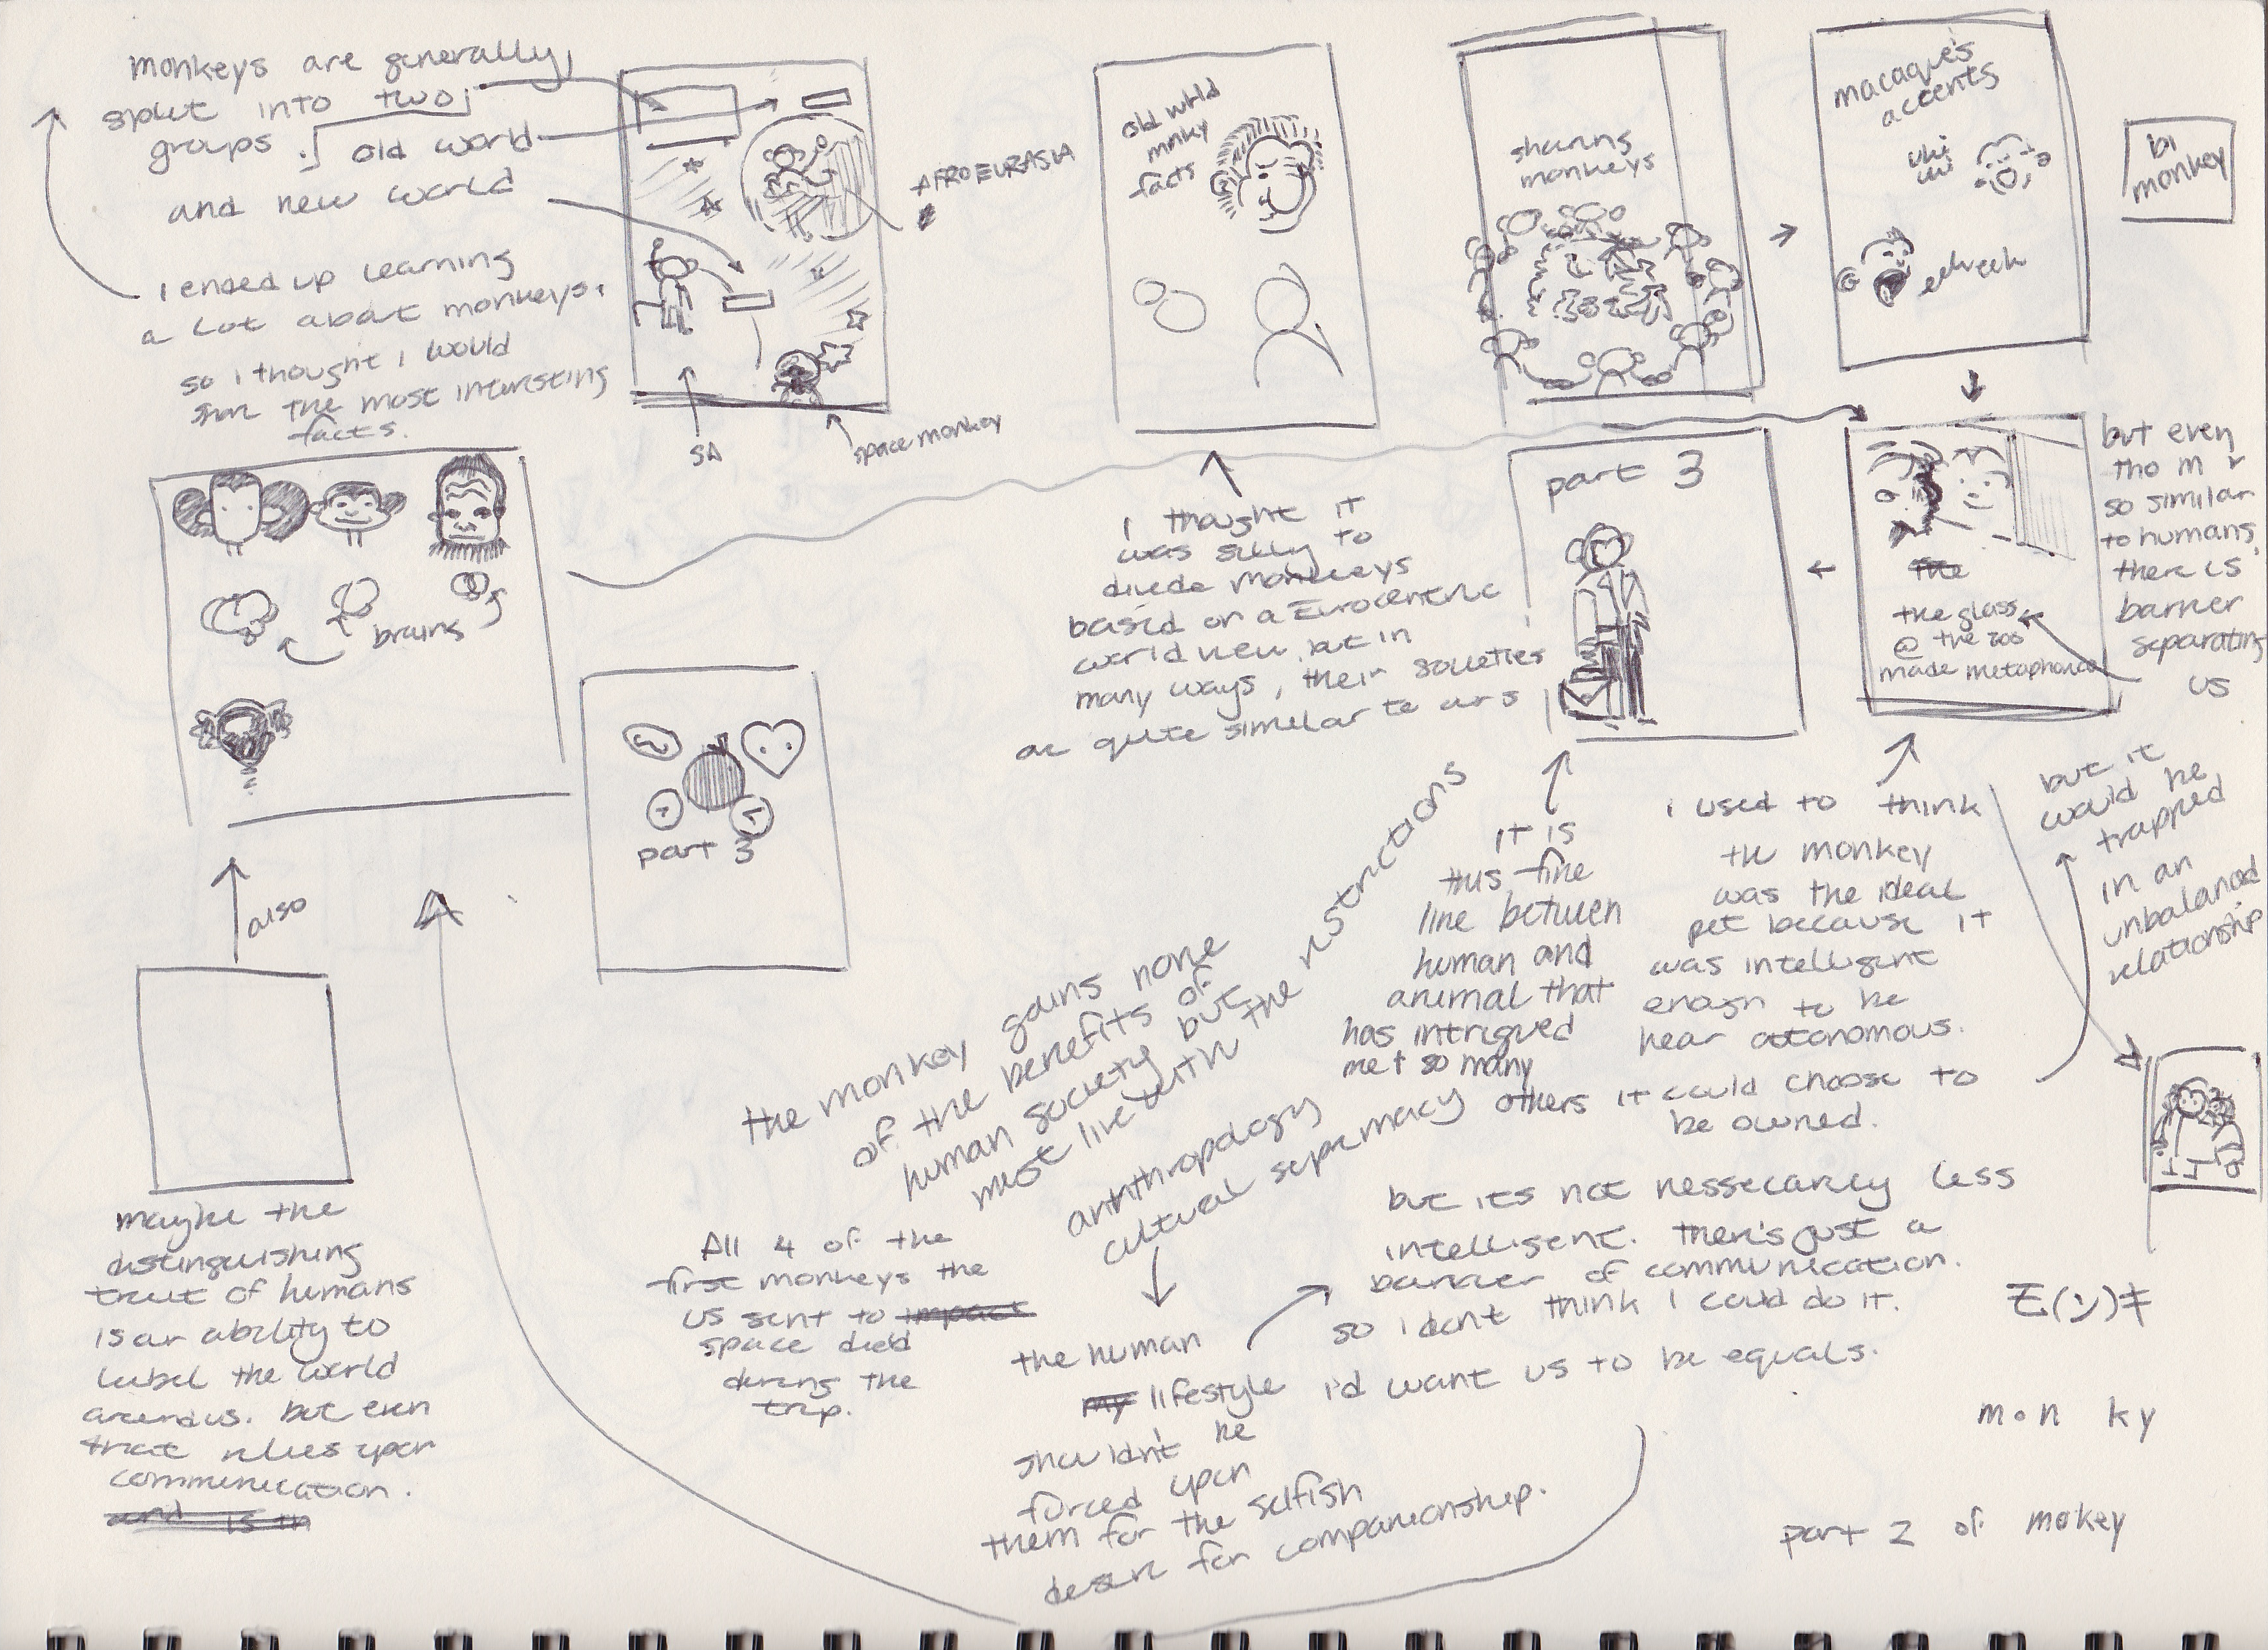 monkeys are generally
split into two
groups. old world
and new world
i ended up learning
a lot about monkeys.
so i thought i would
share the most interesting
facts.
AFROEURASIA
SA
space monkey
old world
monky
facts
shunning
monkeys
macaque's
accents
bi
monkey
brains
also
part 3
maybe the
distinguishing
trait of humans
is our ability to
label the world
around us. but even
that relies upon
communication.
and is th
i thought it
was silly to
divide monkeys
based on a Eurocentric
world view but in
many ways, their societies
are quite similar to ours
part 3
the
the glass
@ the zoo
made metaphorical
but even
tho m r
so similar
to humans,
there is
barrier
separating
us
it is
this fine
line between
human and
animal that
has intrigued
me + so many
others
i used to think
the monkey
was the ideal
pet because it
was intelligent
enogh to be
near autonomous.
it could choose to
be owned.
but it
would be
trapped
in an
unbalanced
relationship
the monkey gains none
of the benefits of
human society but
must live with the restrictions
anthropology
cultural supremacy
All 4 of the
first monkeys the
us sent to impact
space died
during the
trip.
the human
my lifestyle
shouldn't be
forced upon
them for the selfish
desire for companionship.
but its not nessecarily less
intelligent. there's just a
barrier of communication.
so i dont think i could do it.
i'd want us to be equals.
mon ky
part 2 of mokey